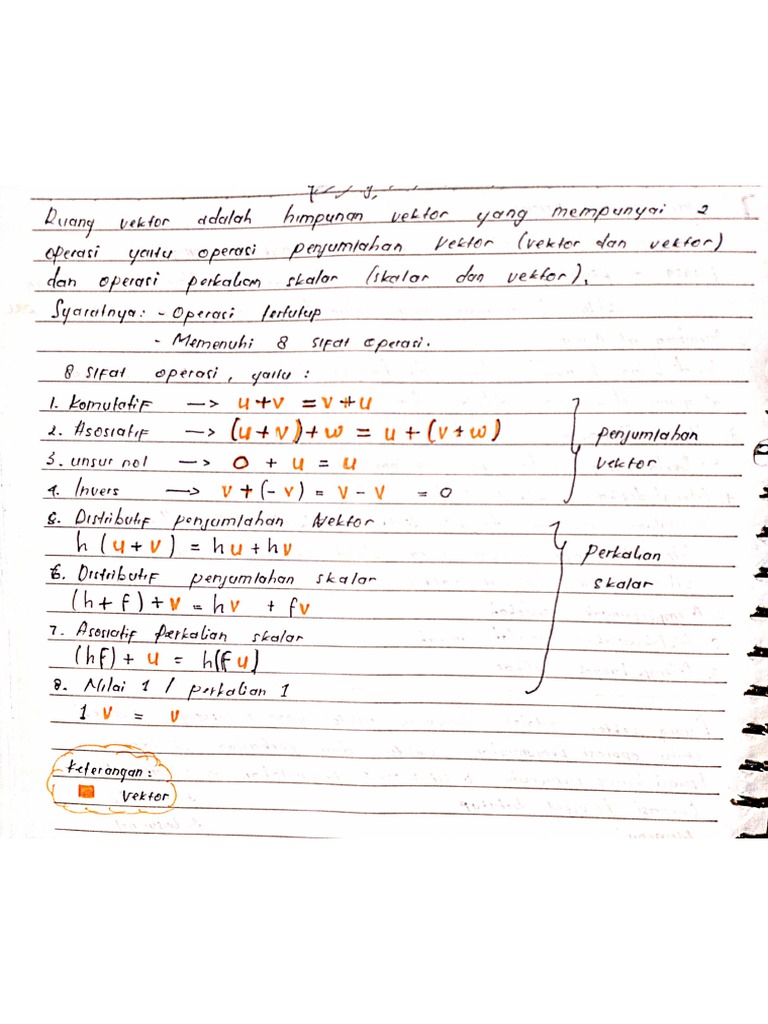 Ruang vektor adalah himpunan vektor yang mempunyai 2
operasi yaitu operasi penjumlahan vektor (vektor dan vektor)
dan operasi perkalian skalar (skalar dan vektor).
Syaratnya : - Operasi tertutup
- Memenuhi 8 sifat operasi.
8 sifat operasi, yaitu :
1. Komutatif → u + v = v + u
2. Asosiatif → (u + v) + w = u + (v + w)
3. unsur nol → 0 + u = u
4. Invers → v + (- v) = v - v = 0
penjumlahan
vektor
5. Distributif penjumlahan vektor.
h (u + v) = hu + hv
6. Distributif penjumlahan skalar
(h + f) + v = hv + fv
7. Asosiatif perkalian skalar
(hf) + u = h(fu)
8. Nilai 1 / perkalian 1
1 v = v
perkalian
skalar
keterangan :
vektor